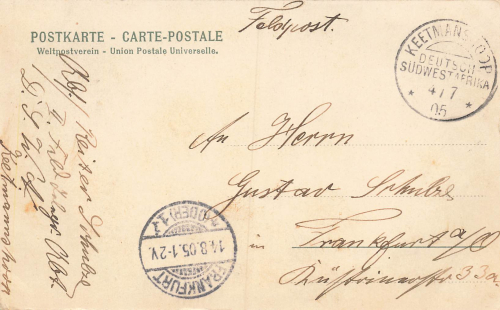 POSTKARTE - CARTE-POSTALE
Weltpostverein - Union Postale Universelle.
Feldpost.
KEETMANSHOOP
DEUTSCH-
SÜDWESTAFRIKA
4/7
05
An Herrn
Gustav Schulze
in Frankfurt a/O
Küstrinerstr 33a.
FRANKFURT
14.8.05.1-2V.
(ODER) 1
Reiter Schulze
II Feld
Keetmanshoop